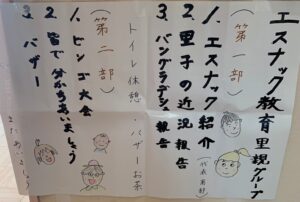 エスナック教育里親グループ
(第一部)
1.エスナック紹介
2.里子の近況報告
3.バングラデシュ報告
トイレ休憩・バザーお茶
(第二部)
1.ビンゴ大会
2.皆で分かちあいましょう
3.バザー